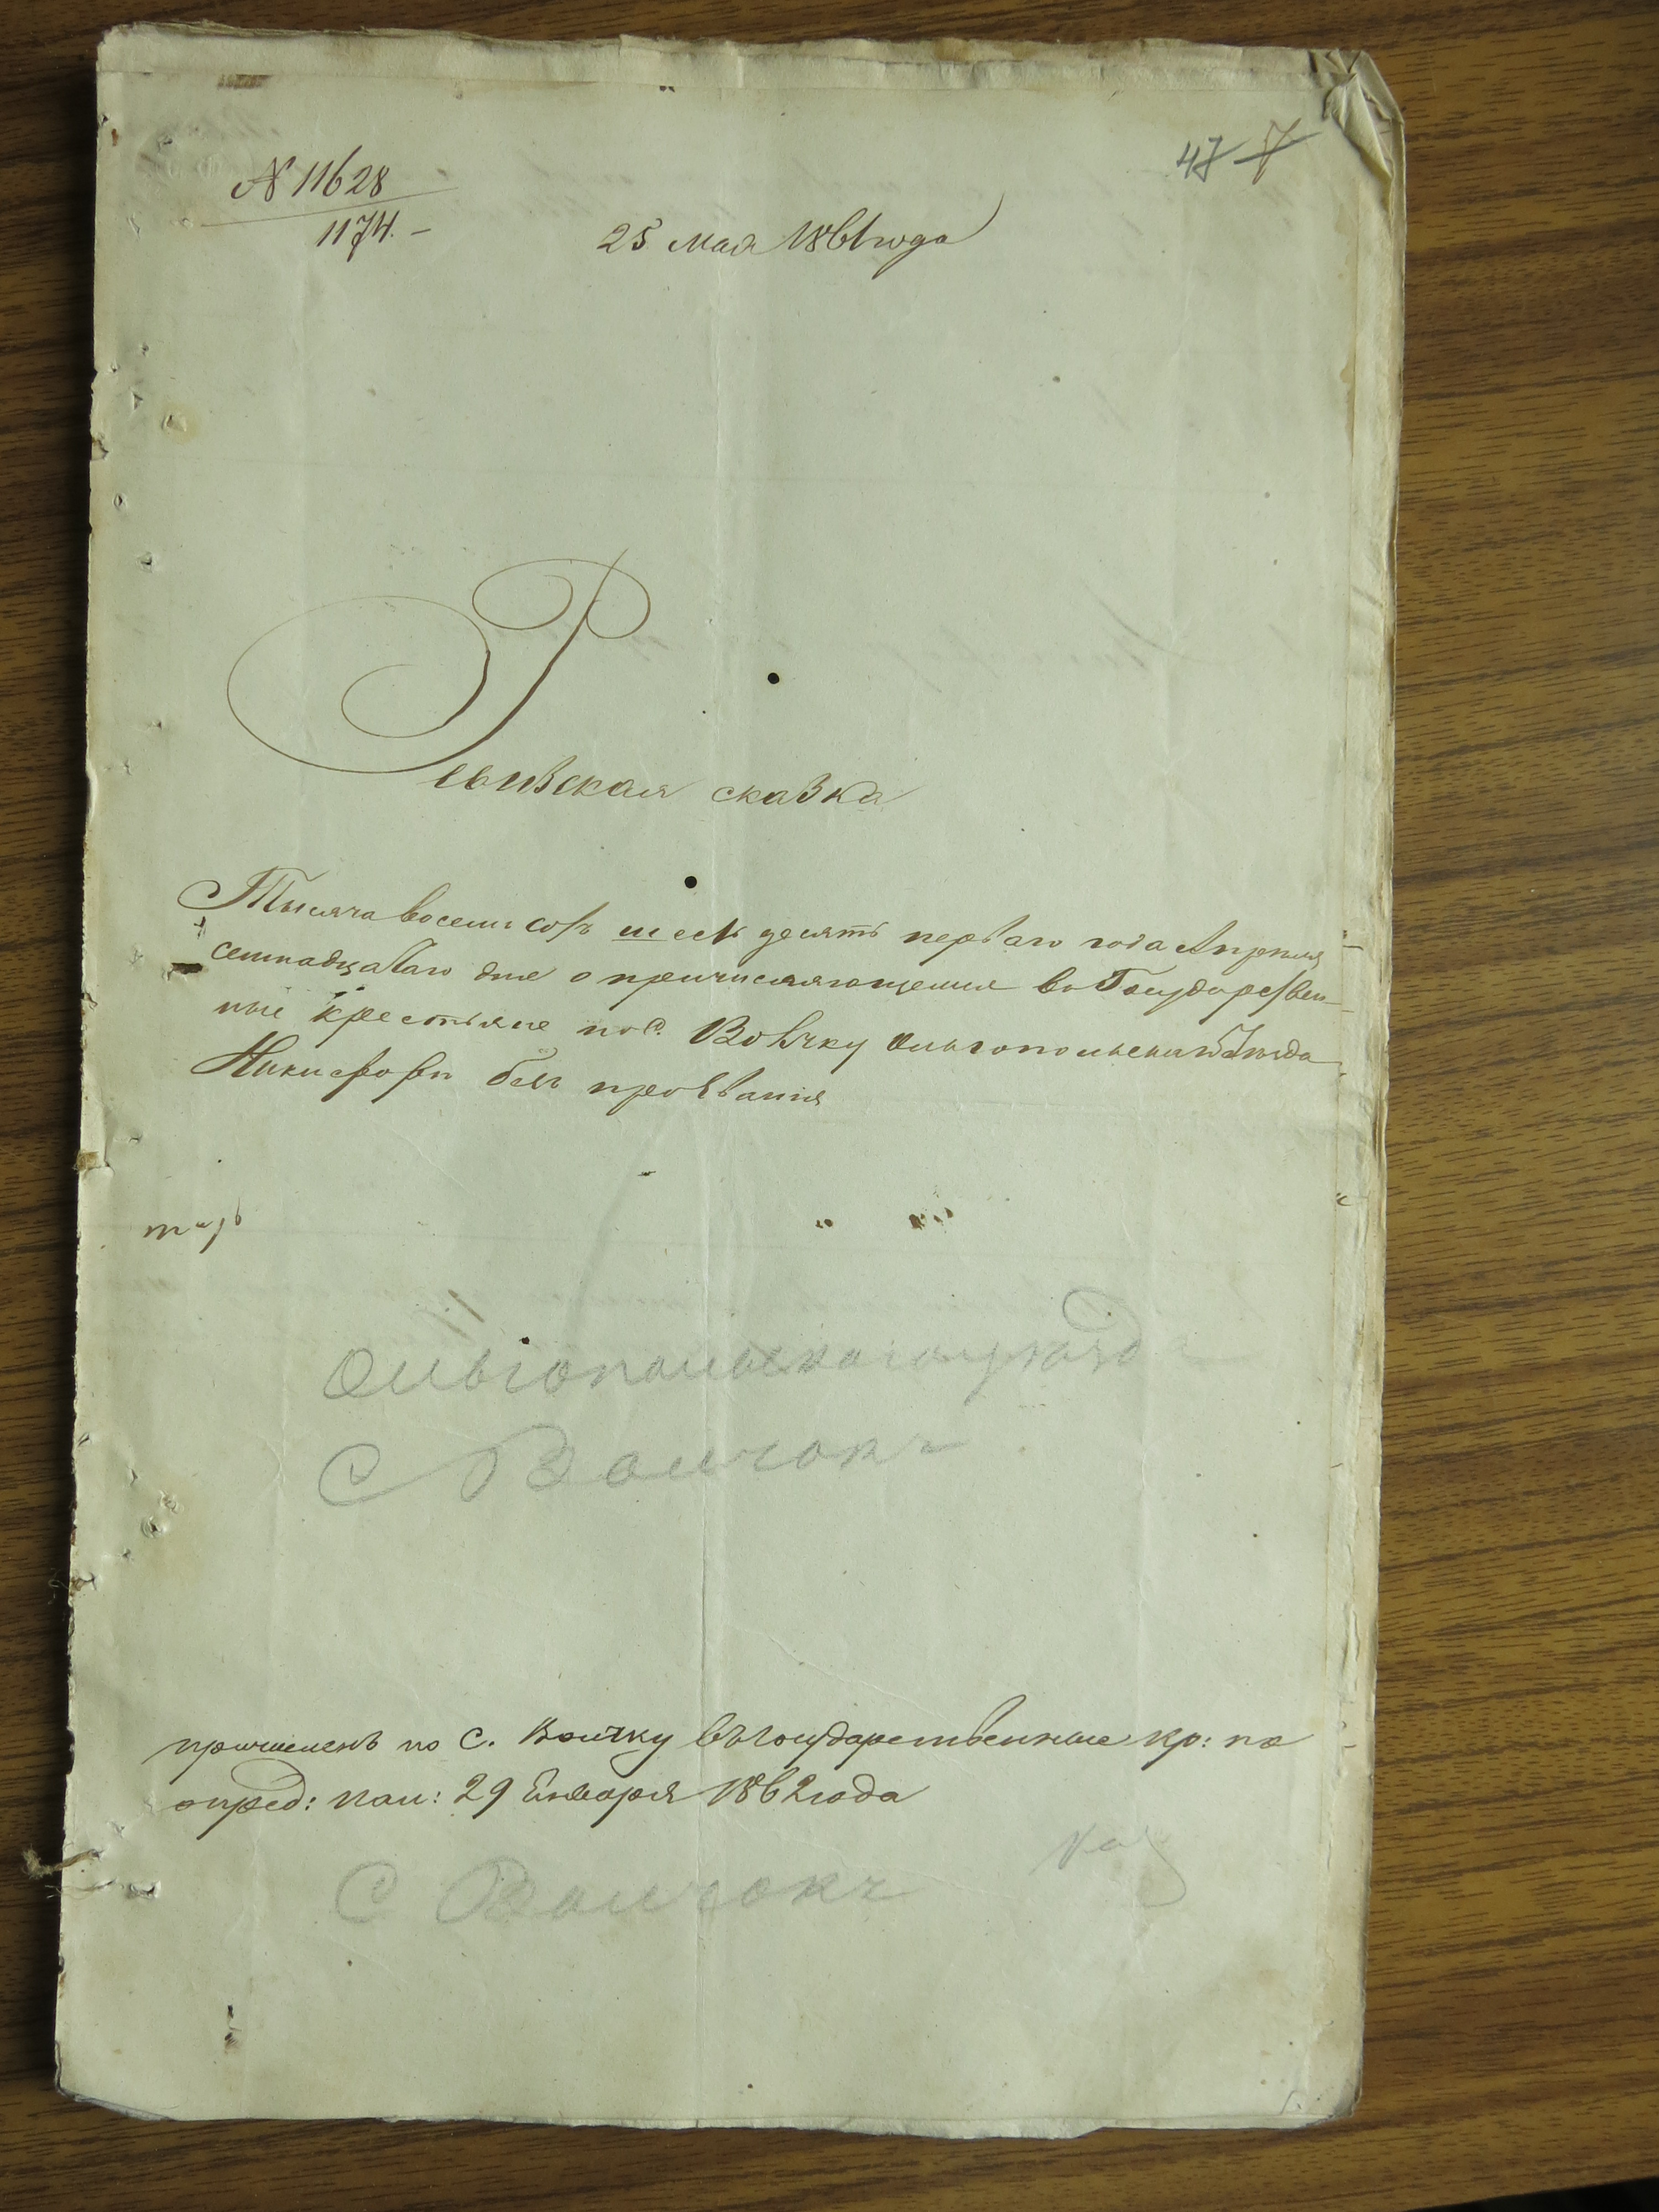 № 11628
1174. –
47 7
25 мая 1861 года
Ревизская сказка
Тысяча восемьсотъ шестьдесятъ перваго года Апреля
семнадцатаго дня о причисляющемся въ Государствен-
ные крестьяне по с. Вовчку Ольгопольскаго Уѣзда
Никифоре безъ прозванія
Ольгопольскаго уѣзда
С Волчокъ
причисленъ по С. Волчку въ государственные кр: по
опред: пал: 29 Января 1862 года
С Волчокъ